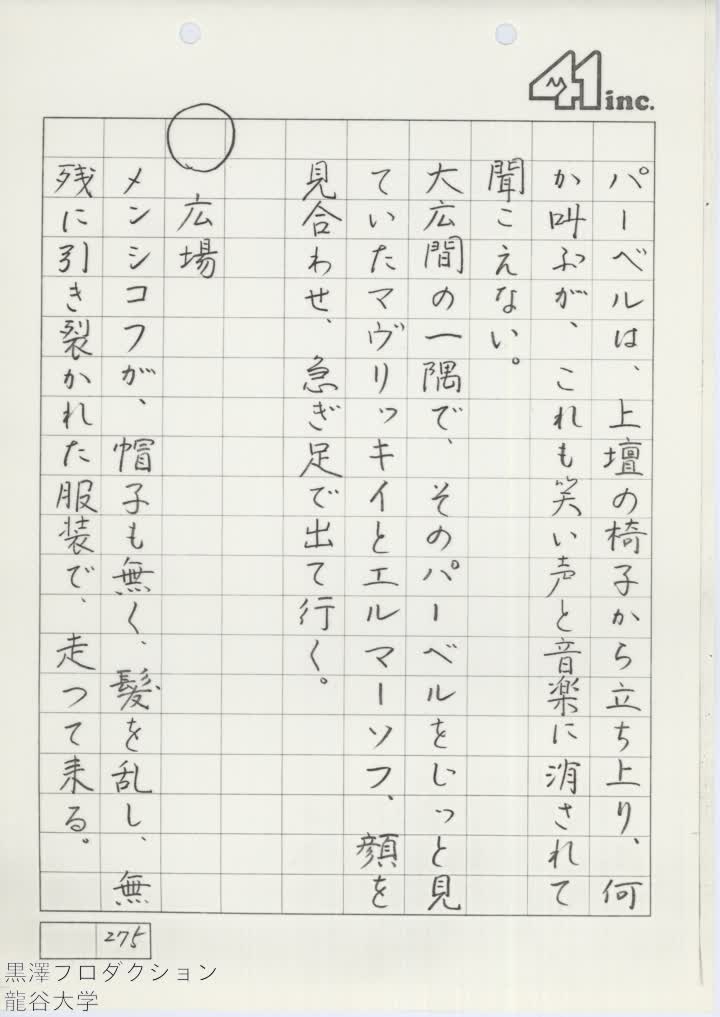 41 inc.
パーベルは、上壇の椅子から立ち上り、何
か叫ぶが、これも笑い声と音楽に消されて
聞こえない。
大広間の一隅で、そのパーベルをじっと見
ていたマヴリッキイとエルマーソフ、顔を
見合わせ、急ぎ足で出て行く。
○ 広場
メンシコフが、帽子も無く、髪を乱し、無
残に引き裂かれた服装で、走つて来る。
275
黒澤プロダクション
龍谷大学